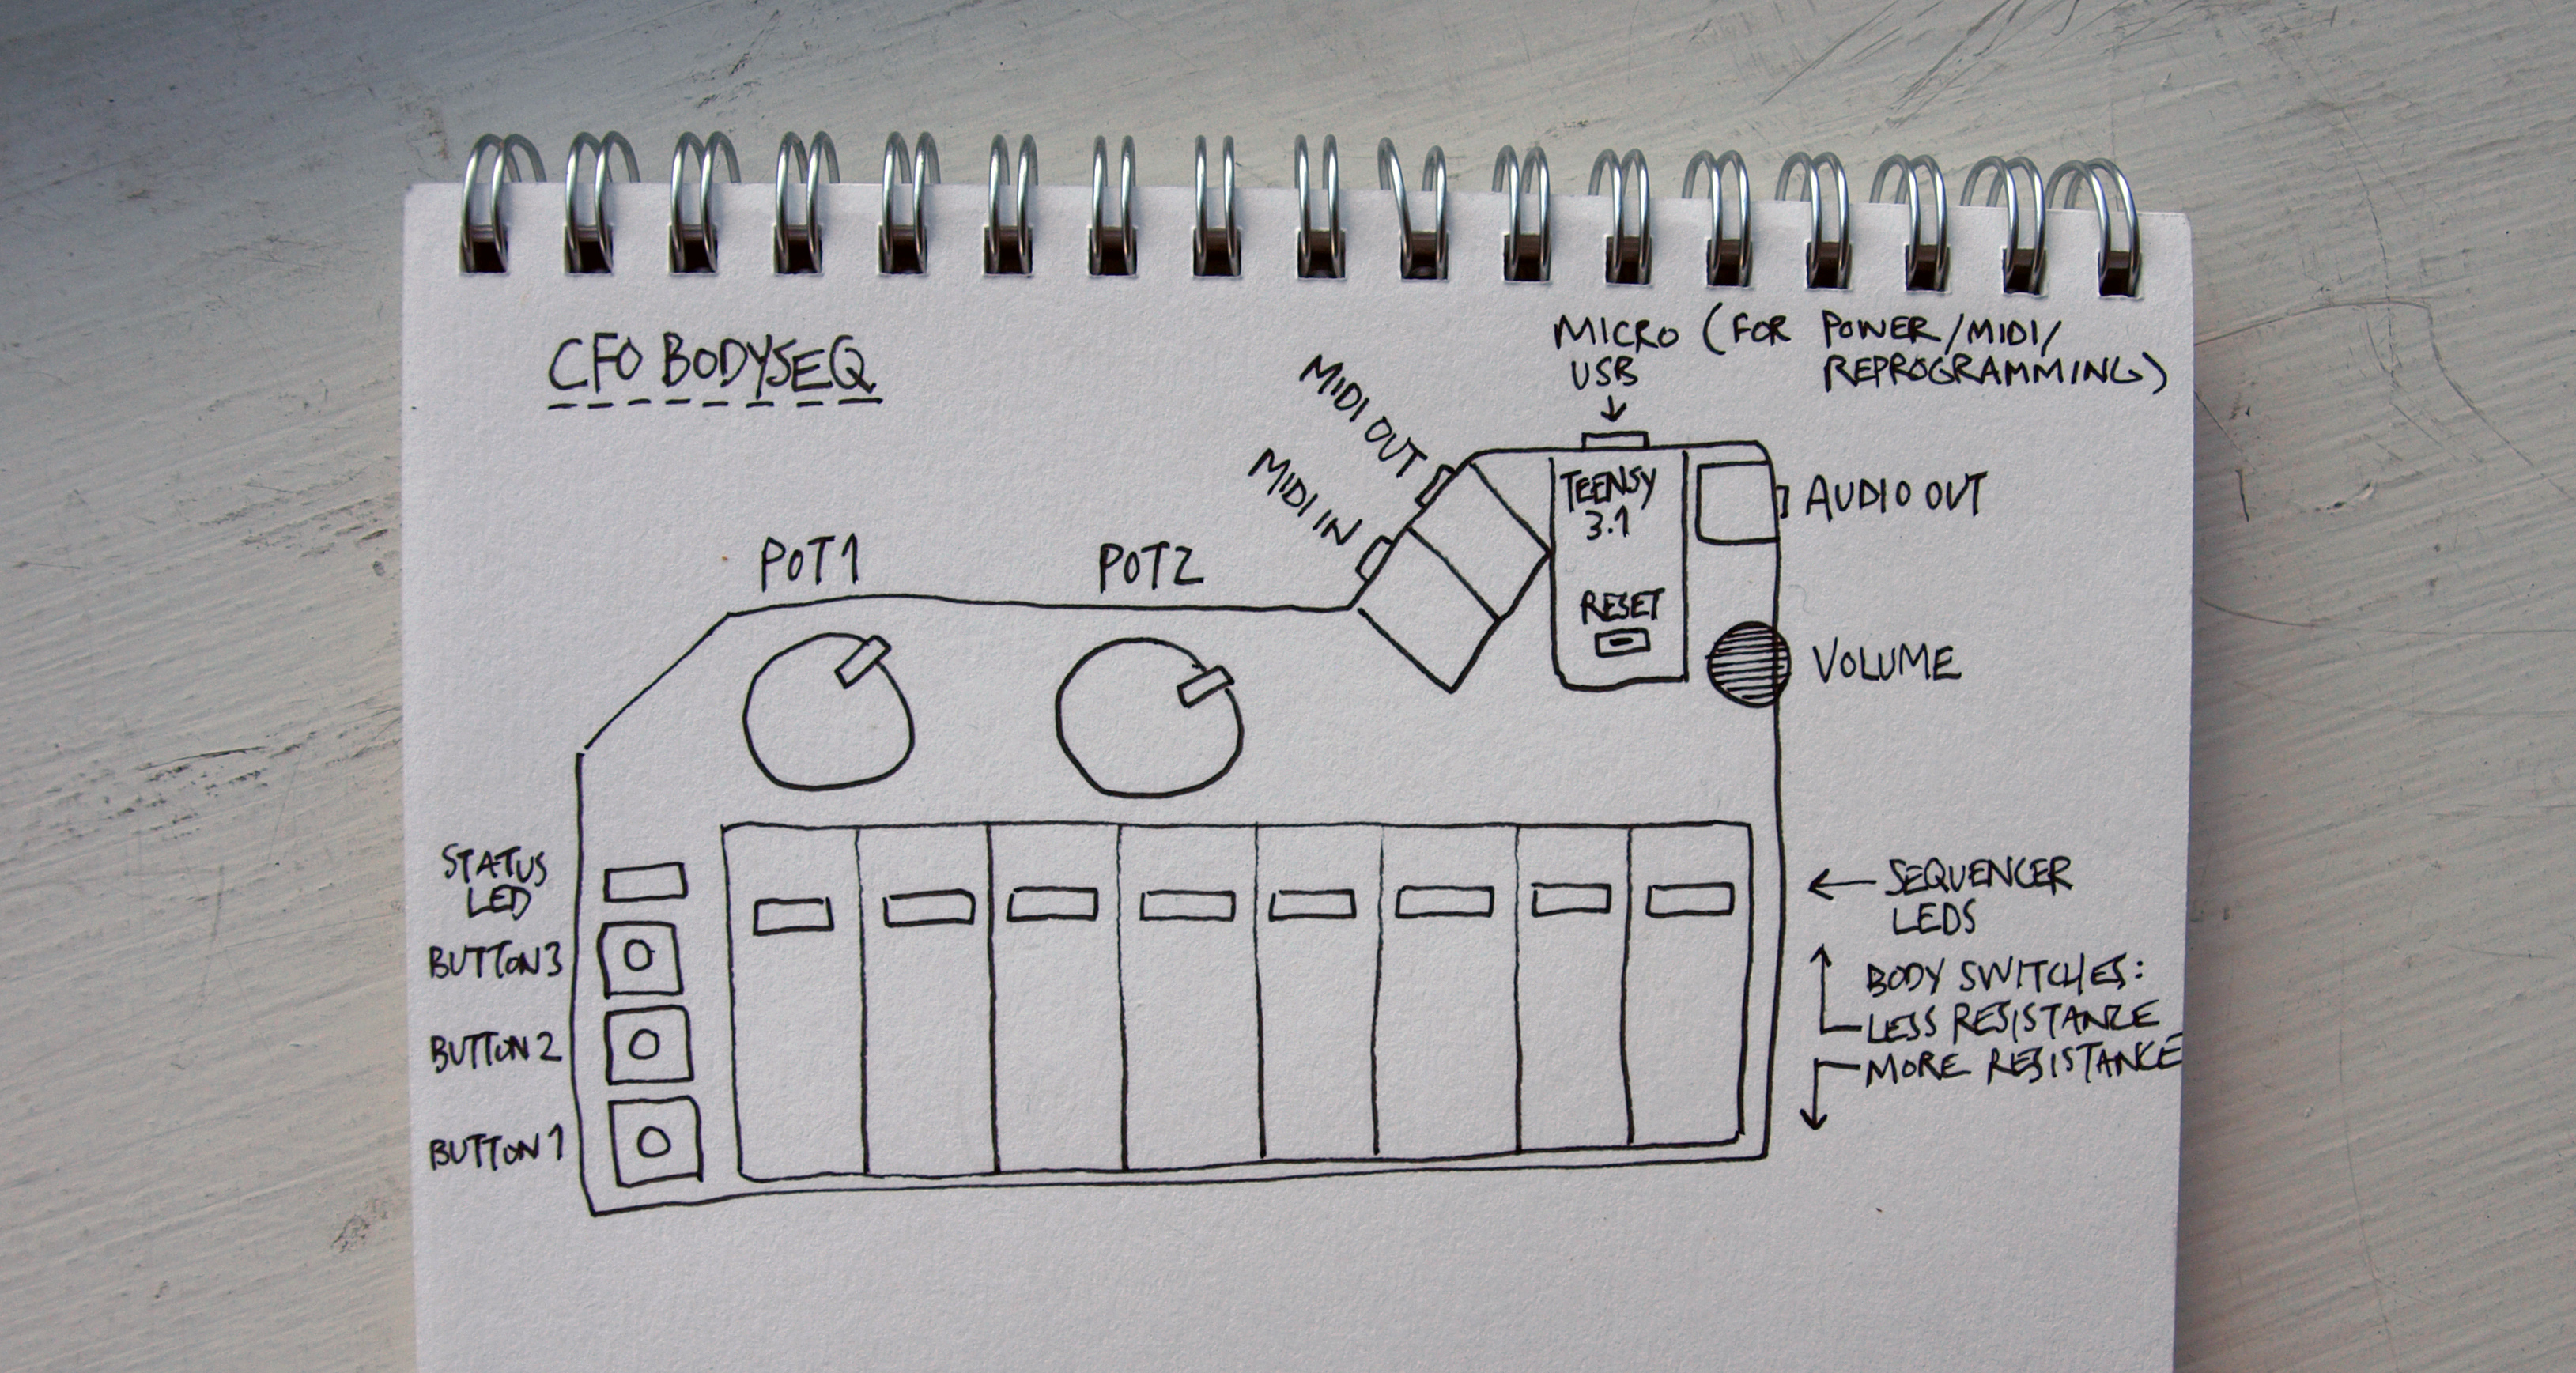 CFO BODYSEQ
MICRO (FOR POWER/MIDI/
USB REPROGRAMMING)
MIDI OUT
MIDI IN
TEENSY
3.1
RESET
AUDIO OUT
POT1
POT2
VOLUME
STATUS
LED
BUTTON3
BUTTON2
BUTTON1
SEQUENCER
LEDS
BODY SWITCHES:
LESS RESISTANCE
MORE RESISTANCE